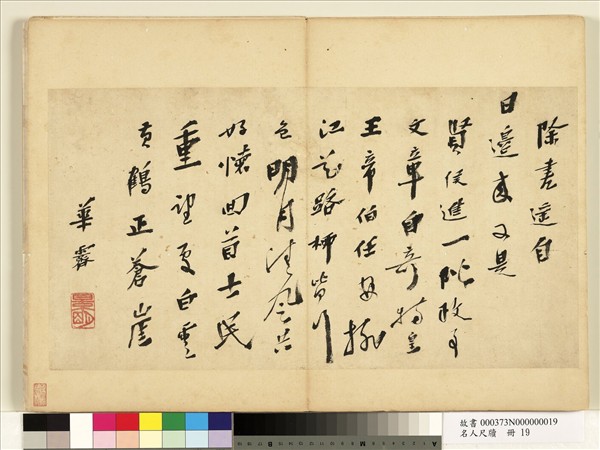 除書遠自
日邊來又是
賢侯進一階政事
文章自奇特皇
王帝伯任安排
江花路柳皆行
色明月清風共
好懷回首士民
重望處白雲
黃鶴正蒼崖
華
故書 000373N000000019
名人尺牘 冊 19